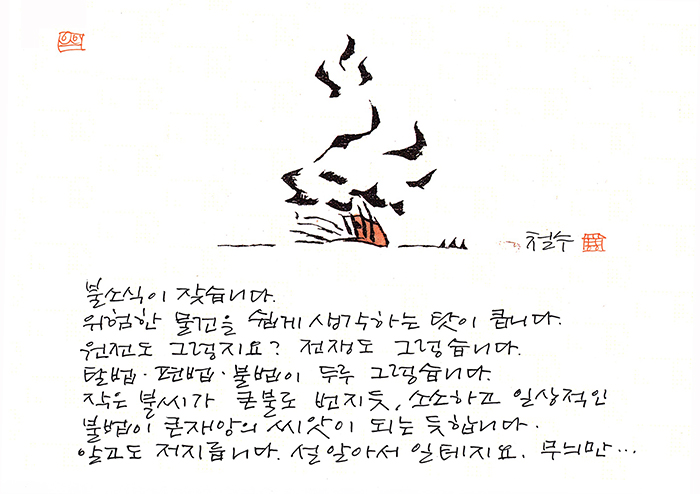 철수
불소식이 잦습니다.
위험한 물건을 쉽게 생각하는 탓이 큽니다.
원전도 그렇지요? 전쟁도 그렇습니다.
탈법·편법·불법이 두루 그렇습니다.
작은 불씨가 큰불로 번지듯, 소소하고 일상적인
불법이 큰재앙의 씨앗이 되는 듯합니다.
알고도 저지릅니다. 설알아서 일테지요. 무늬만…